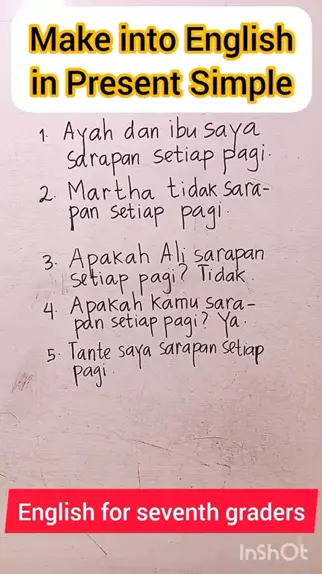 Make into English
in Present Simple
1. Ayah dan ibu saya
sarapan setiap pagi.
2. Martha tidak sara-
pan setiap pagi.
3. Apakah Ali sarapan
setiap pagi? Tidak.
4. Apakah kamu sara-
pan setiap pagi? Ya.
5. Tante saya sarapan setiap
pagi.
English for seventh graders
InShOt